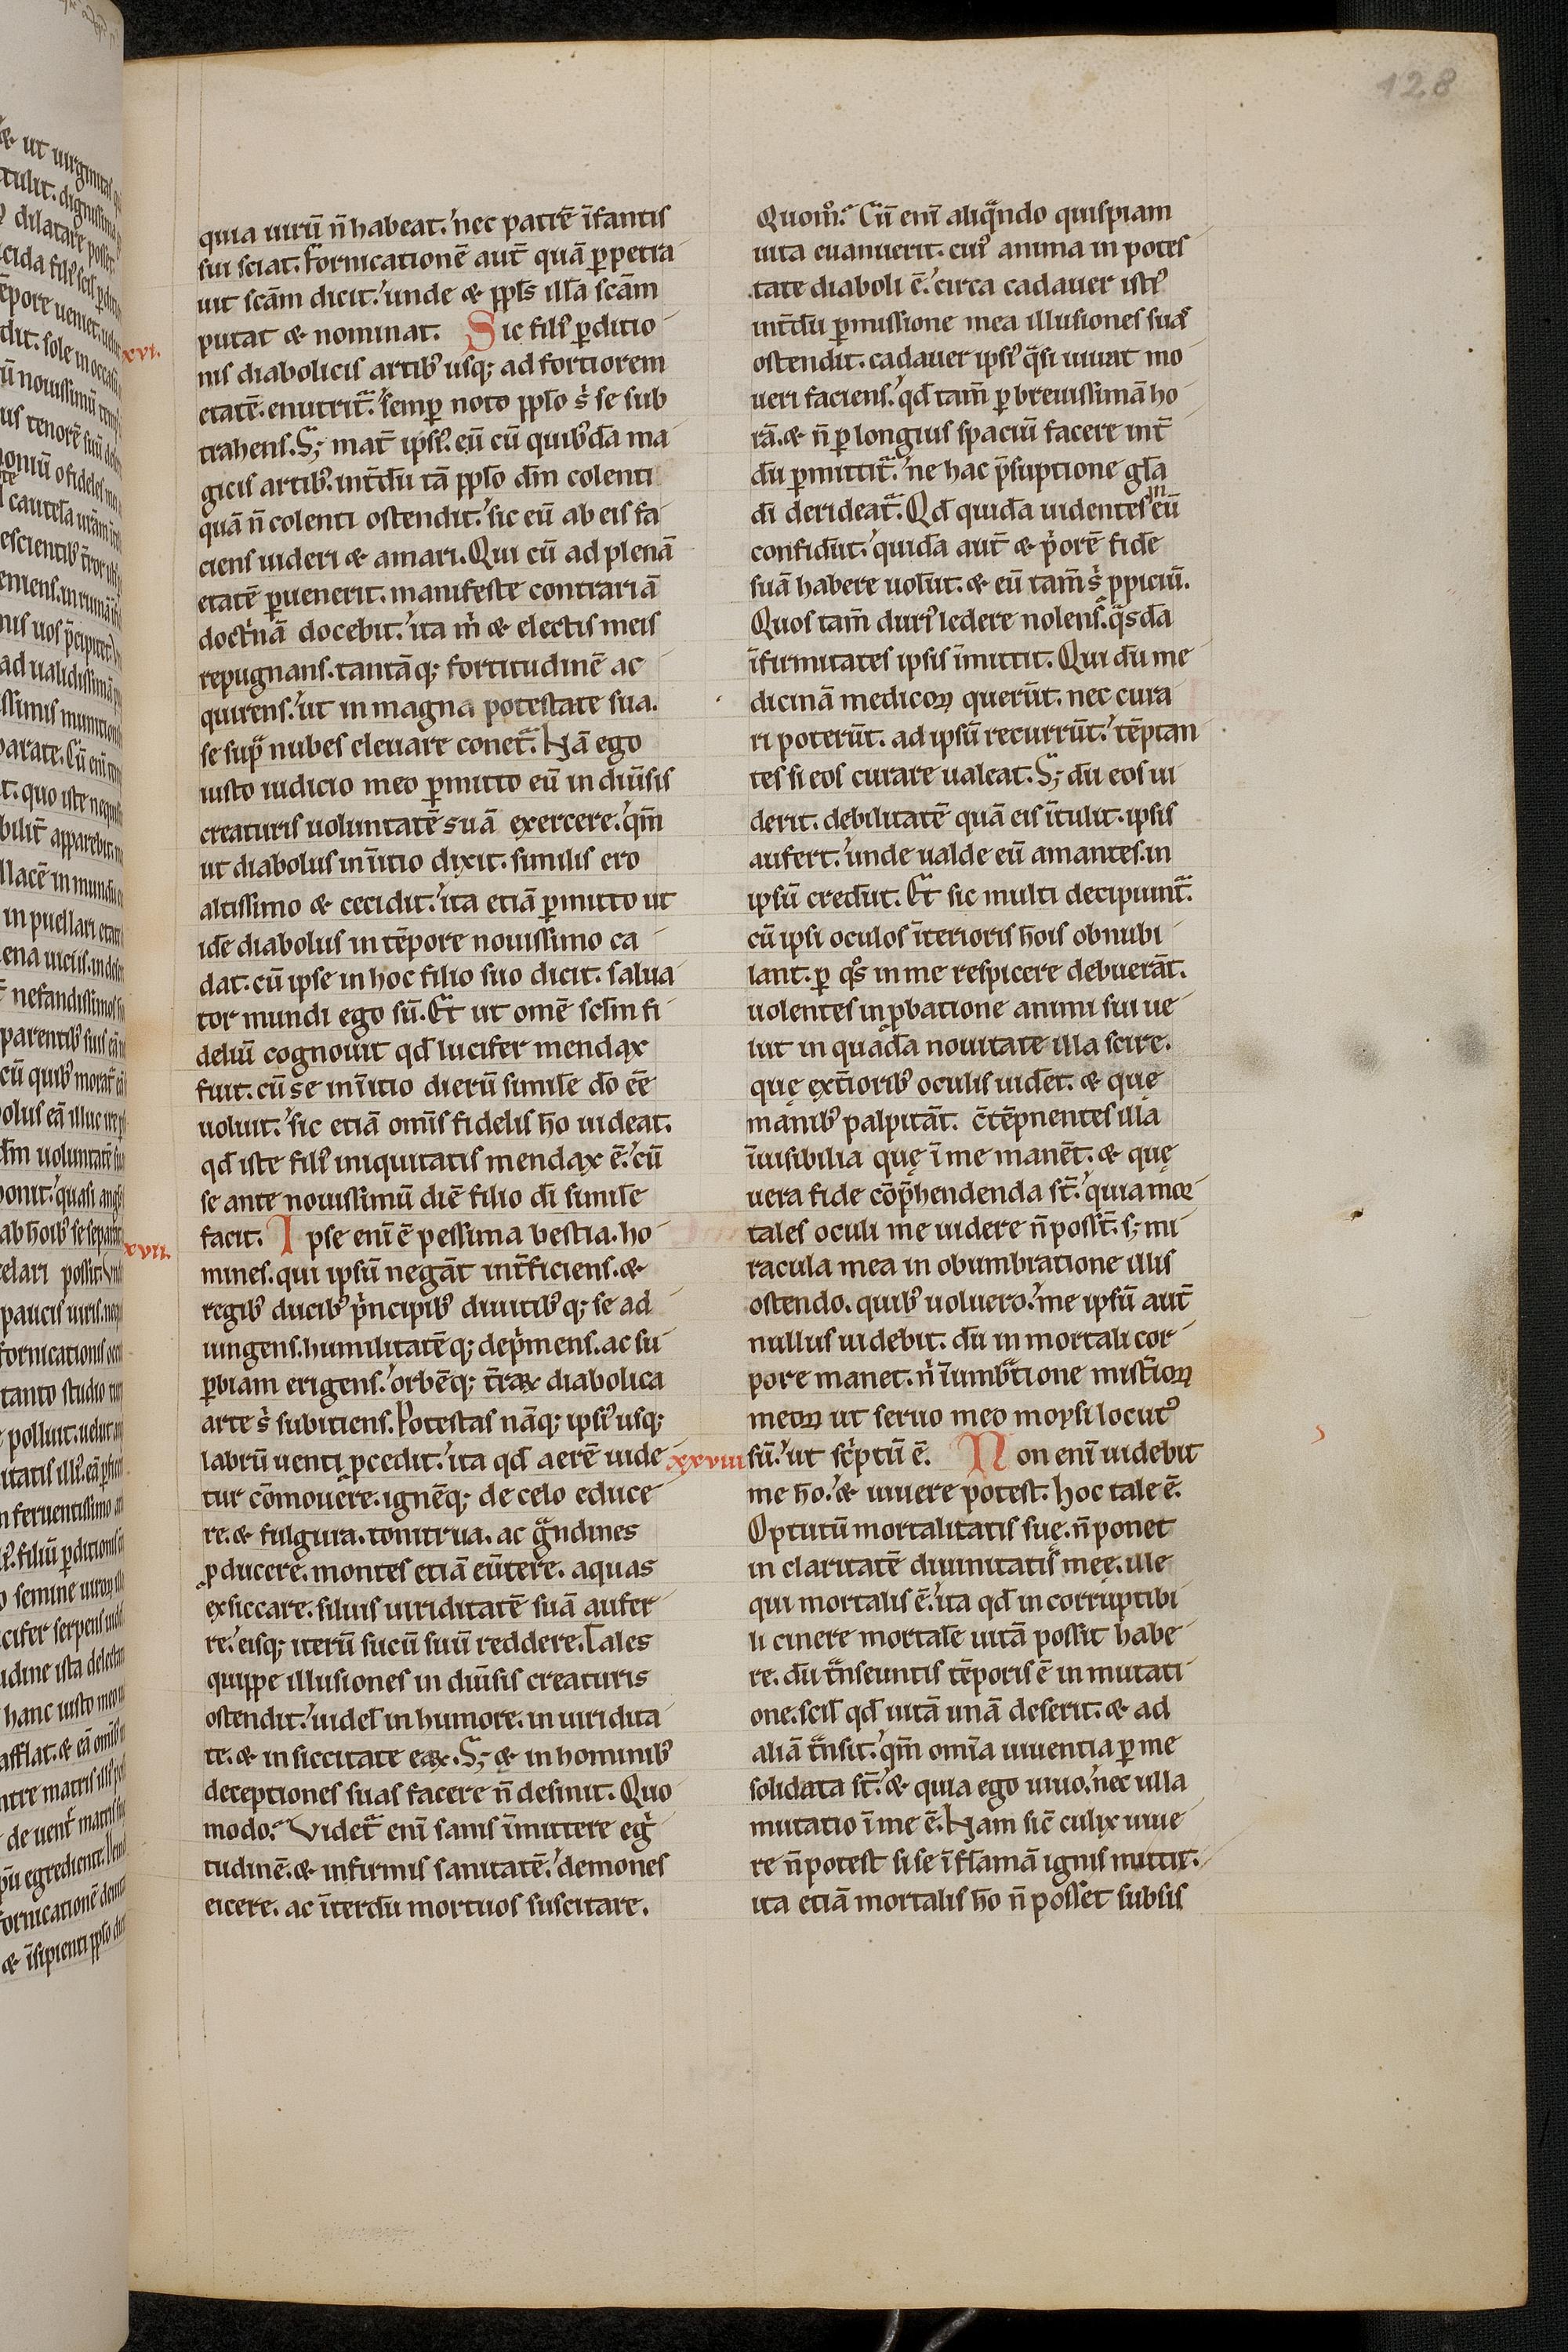 128
quia uirū n̄ habeat.' nec patrē īfantis
sui sciat. Fornicationē aut̄ quā ꝑpetra
uit scām dicit.' unde & ppl̄s illā scām
putat & nominat. Sic filiꝰ ꝑditio
xxvi.
nis diabolicis artibꝰ usq; ad fortiorem
etatē. enutrit᷑.' semꝑ noto pplo s̓ se sub
trahens. S; mat̄ ipsiꝰ. eū cū quibꝰdā ma
gicis artibꝰ. int̄dū tā pplo dm̄ colenti
quā n̄ colenti ostendit.' sic eū ab eis fa
ciens uideri & amari. Qui cū ad plenā
etatē ꝑuenerit. manifeste contrariā
doctͥnā docebit.' ita m̓ & electis meis
repugnans. tantāq; fortitudinē ac
quirens.' ut in magna potestate sua.
se supᷓ nubes eleuare conet᷑. Nā ego
iusto iudicio meo ꝑmitto eū in diūsis
creaturis uoluntatē suā exercere.' qm̄
ut diabolus in īitio dixit. similis ero
altissimo & cecidit.' ita etiā ꝑmitto ut
idē diabolus in tēpore nouissimo ca
dat. cū ipse in hoc filio suo dicit. salua
tor mundi ego sū. Et ut omē sclm̄ fi
deliū cognouit qd̄ lucifer mendax
fuit. cū se in īitio dierū similē dō eē
uoluit.' sic etiā omīs fidelis hō uideat.
qd̄ iste filiꝰ iniquitatis mendax ē.' cū
se ante nouissimū diē filio dī similē
facit. Ipse enī ē pessima bestia. ho
xxvii.
mines. qui ipsū negāt int̄ficiens. &
regibꝰ ducibꝰ pͥncipibꝰ diuitibꝰq; se ad
iungens. humilitatēq; depͥmens. ac su
ꝑbiam erigens.' orbēq; t̄raꝝ diabolica
arte s̓ subiciens. Potestas nāq; ipsiꝰ usq;
labrū uenti ꝓcedit.' ita qd̄ aerē uide
tur cōmouere. ignēq; de celo educe
re. & fulgura. tonitrua. ac gᷓndines
ꝓducere. montes etiā eūtere. aquas
exsiccare. siluis uiriditatē suā aufer
re.' eisq; iterū sucū suū reddere. Tales
quippe illusiones in diūsis creaturis
ostendit.' uidel̄ in humore. in uiridita
te. & in siccitate eaꝝ. S; & in hominibꝰ
deceptiones suas facere n̄ desinit. Quo
modo? Videt᷑ enī sanis īmittere egͥ
tudinē. & infirmis sanitatē.' demones
eicere. ac īterdū mortuos suscitare.
Quom̊? Cū enī aliqᷓndo quispiam
uita euanuerit. cuiꝰ anima in potes
tate diaboli ē.' circa cadauer istiꝰ
int̄dū ꝑmissione mea illusiones suas
ostendit. cadauer ipsiꝰ qᷓsi uiuat mo
ueri faciens.' qd̄ tam̄ ꝑ breuissimā ho
rā. & n̄ ꝑ longius spaciū facere int̄
dū ꝑmittit᷑.' ne hac p̄suptione gl̄a
dī derideat᷑. Qd̄ quidā uidentes in eū
confidūt.' quidā aut̄ & pͥorē fidē
suā habere uolūt. & eū tam̄ s̓ ꝓpiciū.
Quos tam̄ duriꝰ ledere nolens. qᷓsdā
īfirmitates ipsis īmittit. Qui dū me
dicinā medicoꝝ querūt. nec cura
ri poterūt. ad ipsū recurrūt.' tēptan
tes si eos curare ualeat. S; dū eos ui
derit. debilitatē quā eis ītulit. ipsis
aufert.' unde ualde eū amantes. in
ipsū credūt. Et sic multi decipiunt᷑.
cū ipsi oculos īterioris hōis obnubi
lant. ꝑ qͦs in me respicere debuerāt.
uolentes in ꝓbatione animi sui ue
lut in quadā nouitate illa scire.
quę ext̄ioribꝰ oculis uidēt. & quę
manibꝰ palpitāt. c̄tēpnentes illa
īuisibilia quę ī me manēt. & quę
uera fide cōp̄hendenda st̄.' quia mor
tales oculi me uidere n̄ posst̄. s; mi
racula mea in obumbratione illis
ostendo. quibꝰ uoluero.' me ipsū aut̄
nullus uidebit. dū in mortali cor
pore manet. n̓ ī umbᷓtione mist̄ioꝝ
meoꝝ ut seruo meo moysi locutꝰ
xxviii
sū.' ut scͥptū ē. Non enī uidebit
me hō.' & uiuere potest. Hoc tale ē.
Optutū mortalitatis suę. n̄ ponet
in claritatē diuinitatis meę. ille
qui mortalis ē.' ita qd̄ in corruptibi
li cinere mortalē uitā possit habe
re. dū tᷓnseuntis tēporis ē in mutati
one. scil̄ qd̄ uitā unā deserit. & ad
aliā tᷓnsit.' qm̄ omīa uiuentia ꝑ me
solidata st̄.' & quia ego uiuo.' nec ulla
mutatio ī me ē. Nam sic̄ culix uiue
re n̄ potest si se ī flāmā ignis mittit.
ita etiā mortalis hō n̄ posset subsis